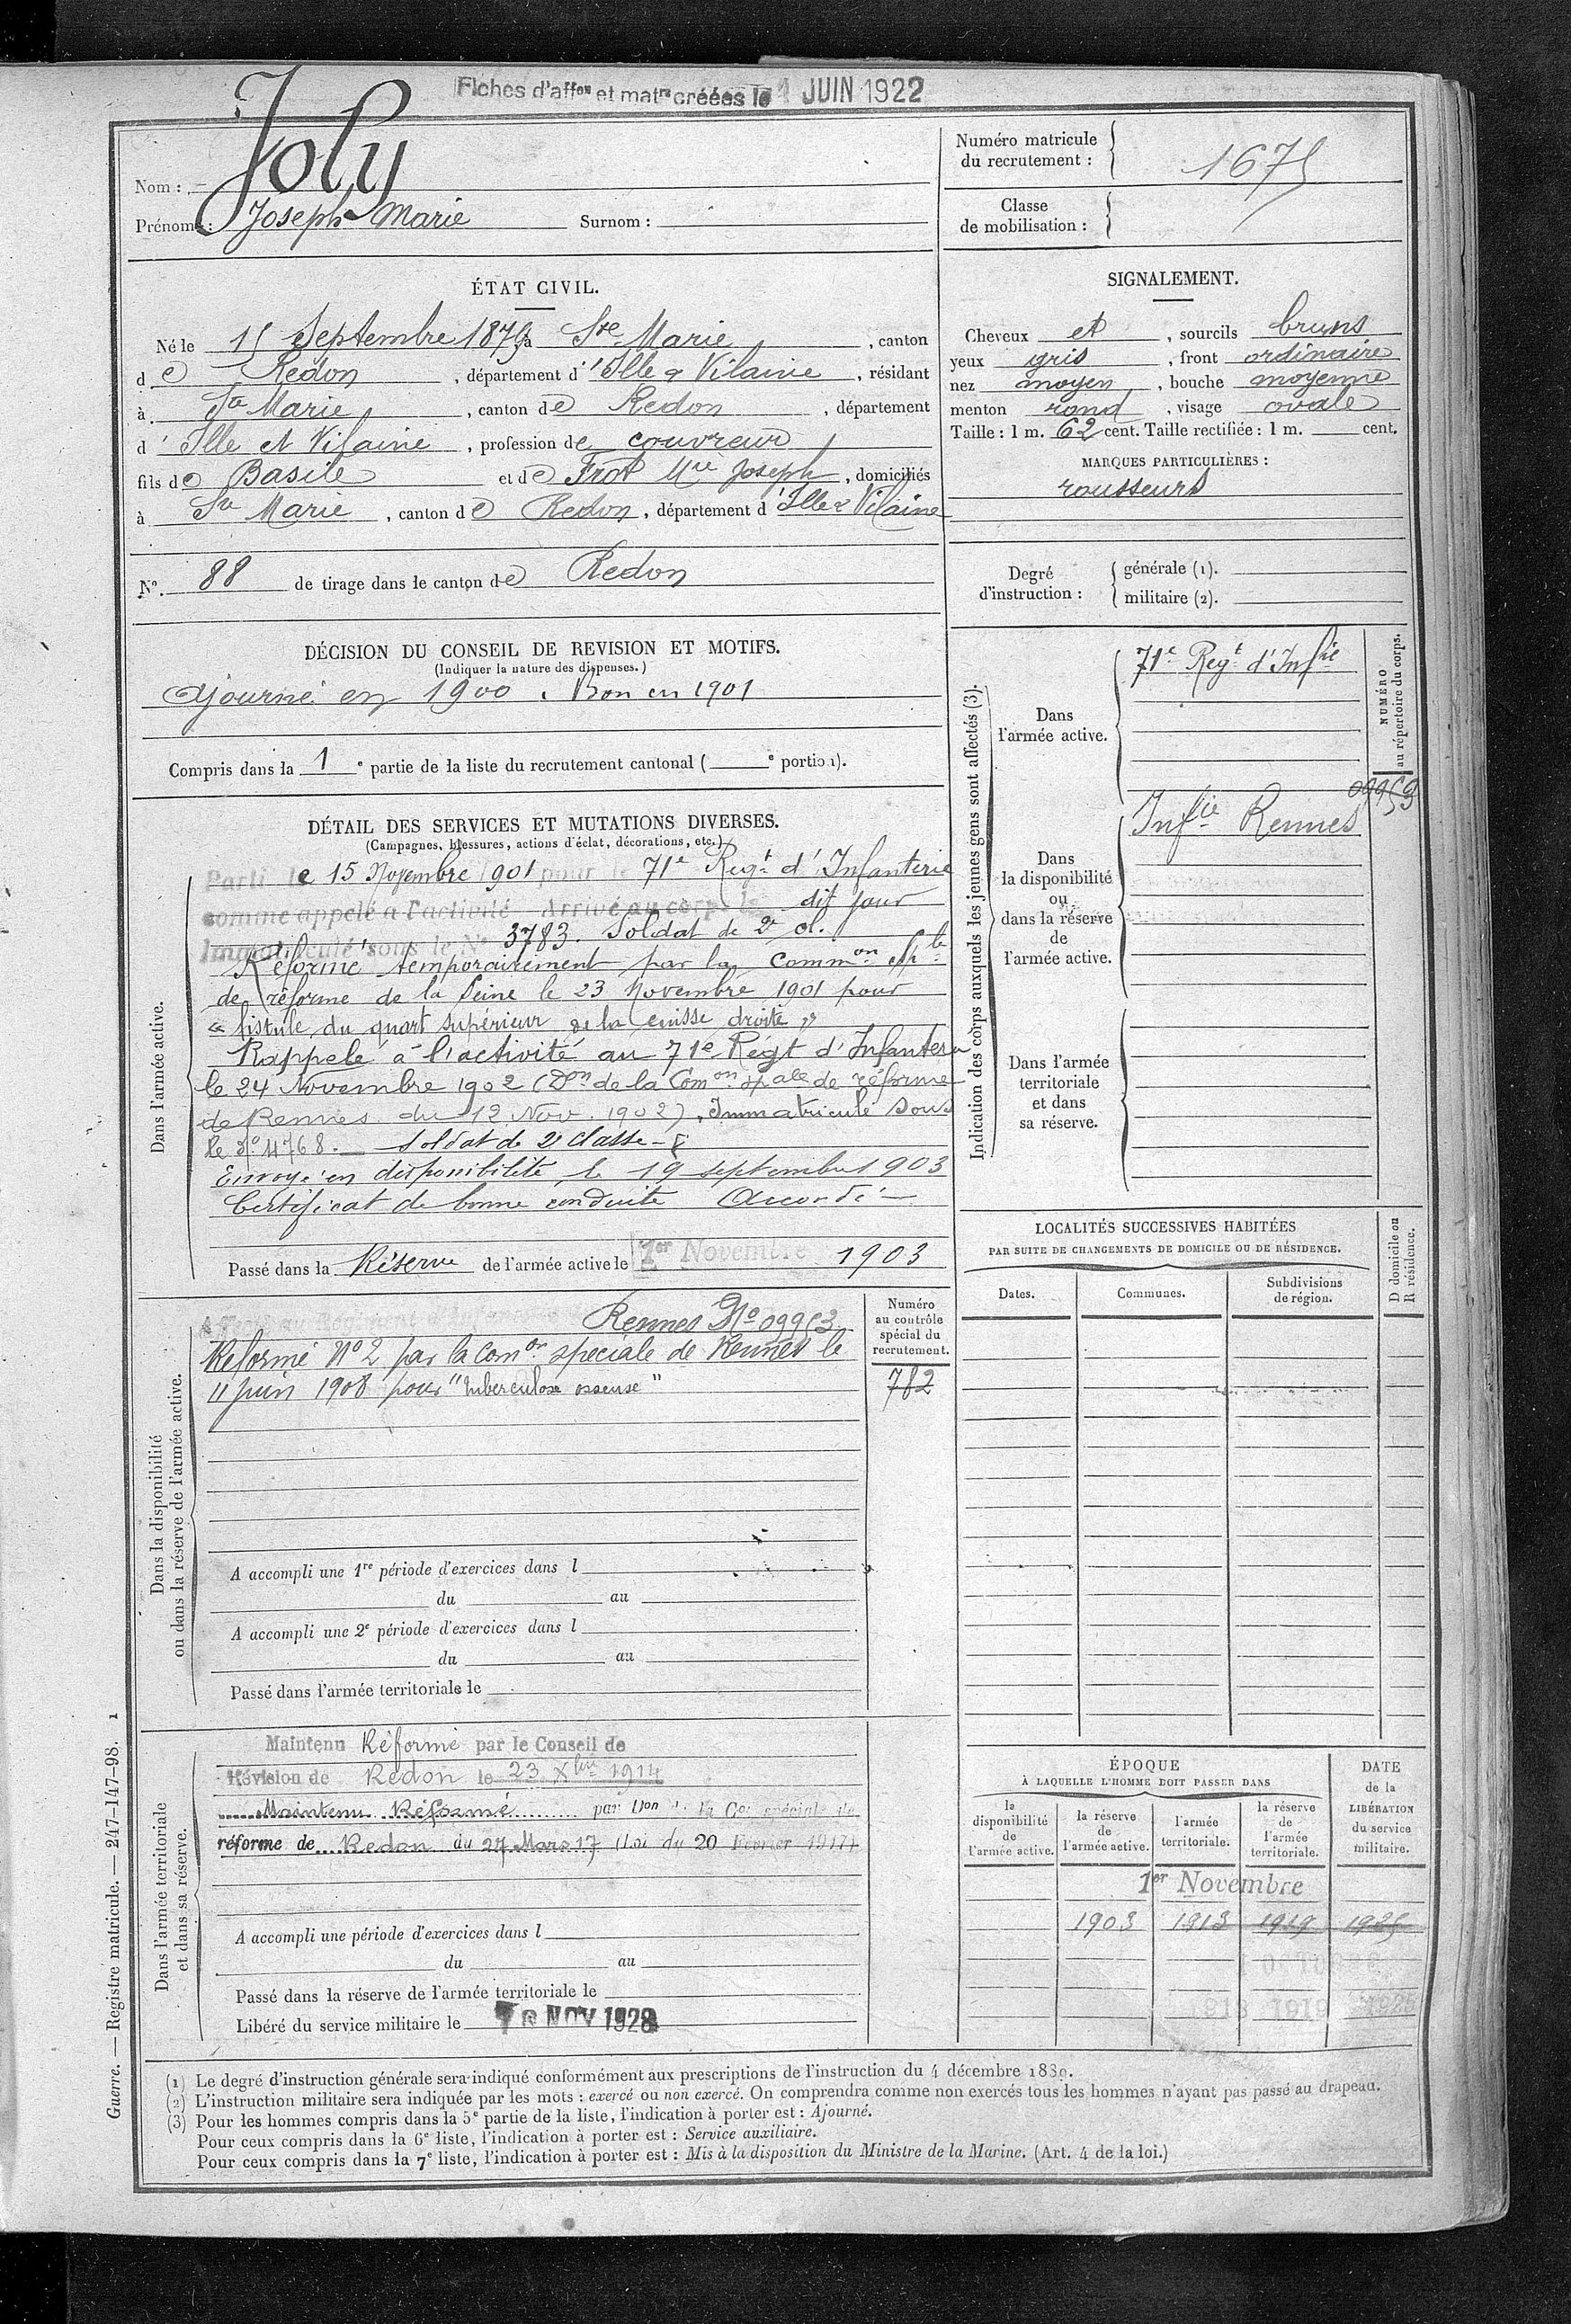 Fiches d'affon et matre créées le 1 JUIN 1922
Nom : Joly
Prénoms : Joseph Marie Surnom :
Numéro matricule
du recrutement : 1675
Classe
de mobilisation :
ÉTAT CIVIL.
Né le 15 Septembre 1879 à Ste Marie, canton
de Redon, département d'Ille & Vilaine, résidant
à Ste Marie, canton de Redon, département
d'Ille et Vilaine, profession de couvreur
fils de Basile et de Frot Mie Joseph, domiciliés
à Ste Marie, canton de Redon, département d'Ille & Vilaine
N° 88 de tirage dans le canton de Redon
SIGNALEMENT.
Cheveux et, sourcils bruns
yeux gris, front ordinaire
nez moyen, bouche moyenne
menton rond, visage ovale
Taille : 1 m. 62 cent. Taille rectifiée : 1 m. cent.
MARQUES PARTICULIÈRES :
rousseurs
Degré
d'instruction :
générale (1).
militaire (2).
DÉCISION DU CONSEIL DE REVISION ET MOTIFS.
(Indiquer la nature des dispenses.)
Ajourné en 1900. Bon en 1901
Compris dans la 1e partie de la liste du recrutement cantonal ( e portion).
DÉTAIL DES SERVICES ET MUTATIONS DIVERSES.
(Campagnes, blessures, actions d'éclat, décorations, etc.)
Dans l'armée active.
Parti le 15 Novembre 1901 pour le 71e Regt d'Infanterie
comme appelé à l'activité Arrivé au corps le dit jour
Immatriculé sous le N° 3783. Soldat de 2e cl.
Réformé temporairement par la Common Sple
de réforme de la Seine le 23 Novembre 1901 pour
« fistule du quart supérieur de la cuisse droite »
Rappelé à l'activité au 71e Régt d'Infanterie
le 24 Novembre 1902 (Don de la Comon spale de réforme
de Rennes du 12 Nov. 1902). Immatriculé sous
le N° 4768. Soldat de 2e classe
Envoyé en disponibilité le 19 septembre 1903
Certificat de bonne conduite Accordé
Passé dans la Réserve de l'armée active le 1er Novembre 1903
Indication des corps auxquels les jeunes gens sont affectés (3).
Dans
l'armée active.
71e Regt d'Infie
NUMÉRO
au répertoire du corps.
09953
Dans
la disponibilité
ou
dans la réserve
de
l'armée active.
Infie Rennes
Dans l'armée
territoriale
et dans
sa réserve.
LOCALITÉS SUCCESSIVES HABITÉES
PAR SUITE DE CHANGEMENTS DE DOMICILE OU DE RÉSIDENCE.
Dates. Communes. Subdivisions
de région.
D domicile ou
R résidence.
Dans la disponibilité
ou dans la réserve de l'armée active.
Rennes N° 09953
Réformé N° 2 par la comon spéciale de Rennes le
11 juin 1908 pour "tuberculose osseuse"
Numéro
au contrôle
spécial du
recrutement.
782
A accompli une 1re période d'exercices dans l
du au
A accompli une 2e période d'exercices dans l
du au
Passé dans l'armée territoriale le
Dans l'armée territoriale
et dans sa réserve.
Maintenu Réformé par le Conseil de
Révision de Redon le 23 Xbre 1914
Maintenu Réformé par Don de la Con spéciale de
réforme de Redon du 27 Mars 17 (Loi du 20 Février 1917)
A accompli une période d'exercices dans l
du au
Passé dans la réserve de l'armée territoriale le
Libéré du service militaire le NOV 1928
ÉPOQUE
À LAQUELLE L'HOMME DOIT PASSER DANS
la
disponibilité
de
l'armée active.
la réserve
de
l'armée active.
l'armée
territoriale.
la réserve
de
l'armée
territoriale.
DATE
de la
LIBÉRATION
du service
militaire.
1er Novembre
1903 1913 1919 1925
Guerre. — Registre matricule. — 247-147-98. 1
(1) Le degré d'instruction générale sera indiqué conformément aux prescriptions de l'instruction du 4 décembre 1889.
(2) L'instruction militaire sera indiquée par les mots : exercé ou non exercé. On comprendra comme non exercés tous les hommes n'ayant pas passé au drapeau.
(3) Pour les hommes compris dans la 5e partie de la liste, l'indication à porter est : Ajourné.
Pour ceux compris dans la 6e liste, l'indication à porter est : Service auxiliaire.
Pour ceux compris dans la 7e liste, l'indication à porter est : Mis à la disposition du Ministre de la Marine. (Art. 4 de la loi.)